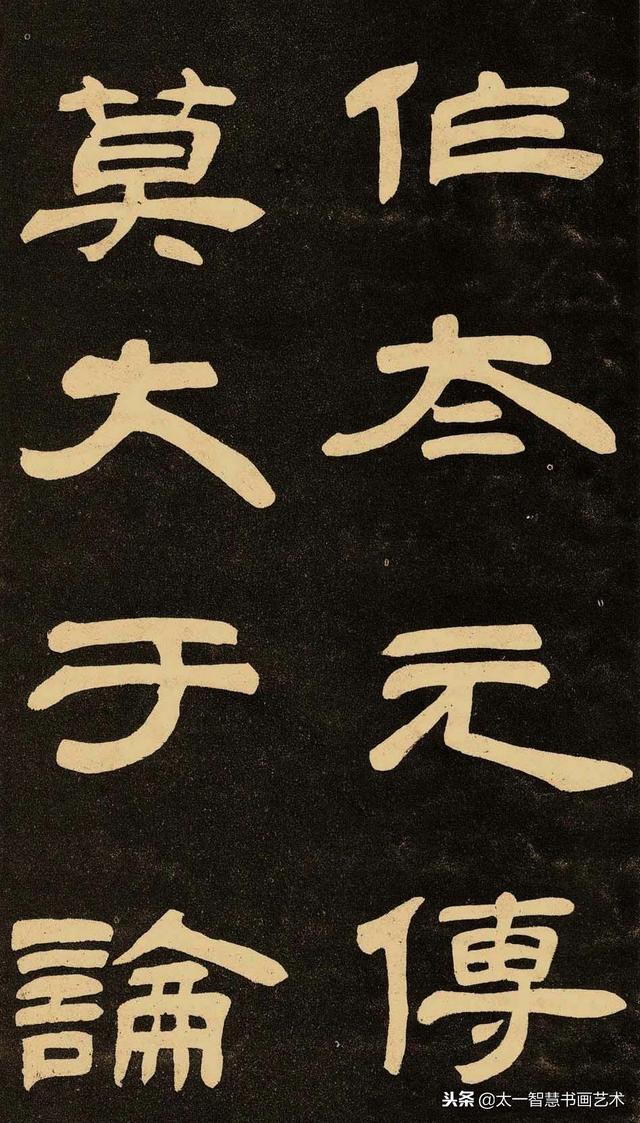 作夳元傳
莫大于論
头条 @太一智慧书画艺术